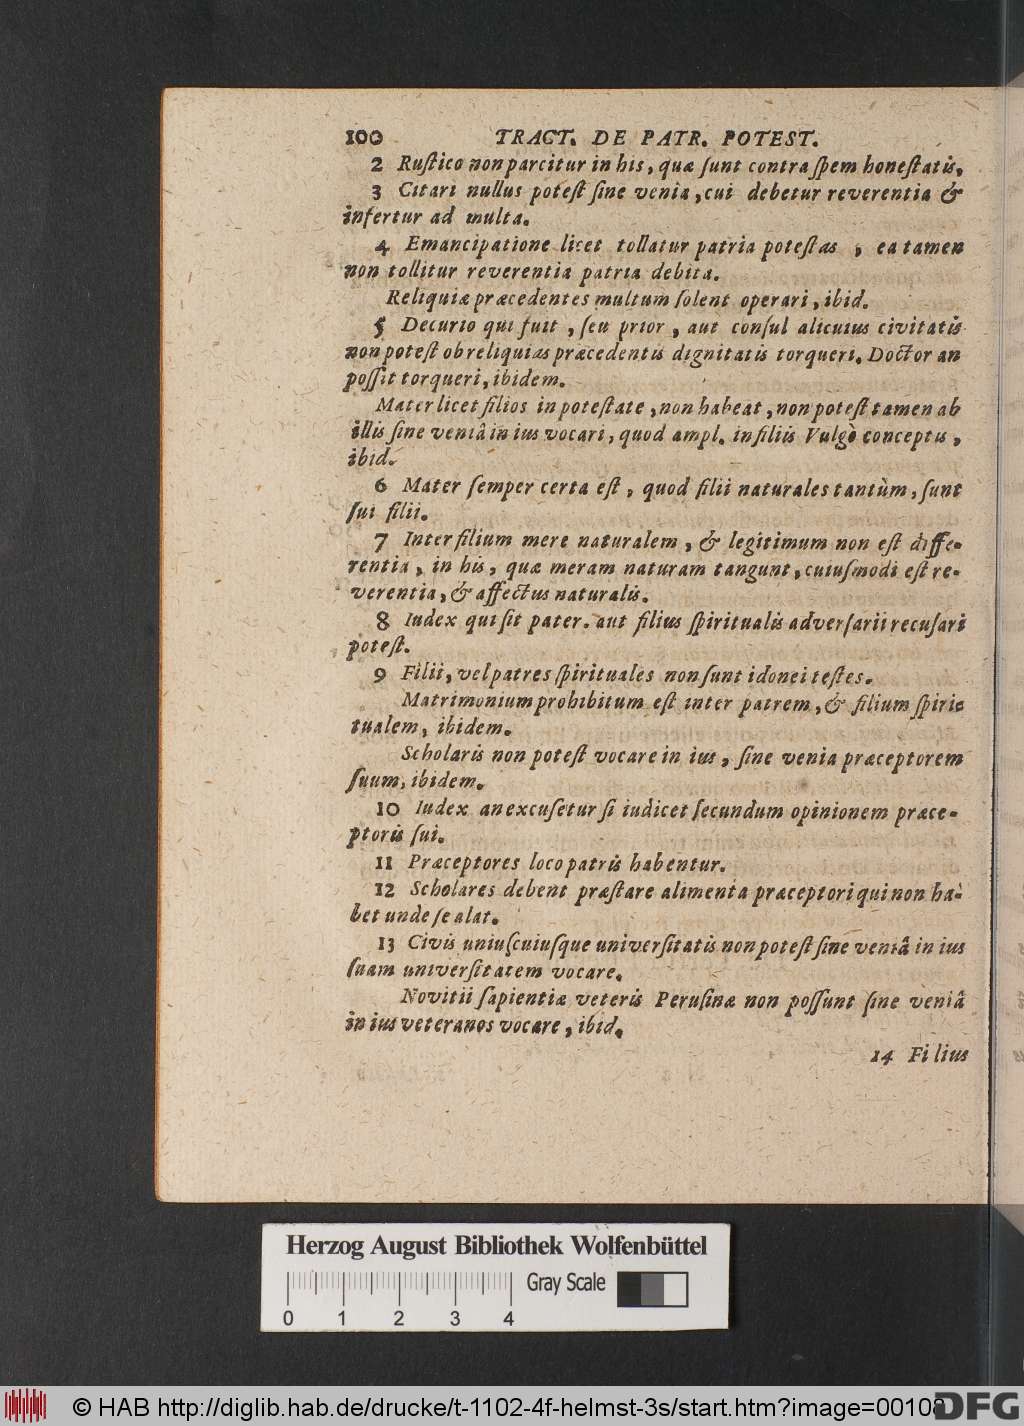 100 TRACT. DE PATR. POTEST.
2 Ruſtico non parcitur in his, quæ ſunt contra ſpem honeſtatis,
3 Citari nullus poteſt ſine venia, cui debetur reverentia &
infertur ad multa.
4 Emancipatione licet tollatur patria poteſtas, ea tamen
non tollitur reverentia patria debita.
Reliquiæ præcedentes multum ſolent operari, ibid.
5 Decurio qui fuit, ſeu prior, aut conſul alicuius civitatis
non poteſt ob reliquias præcedentis dignitatis torqueri. Doctor an
poſſit torqueri, ibidem.
Mater licet filios in poteſtate, non habeat, non poteſt tamen ab
illis ſine veniâ in ius vocari, quod ampl. in filiis Vulgò conceptis,
ibid.
6 Mater ſemper certa eſt, quod filii naturales tantùm, ſunt
ſui filii.
7 Inter filium mere naturalem, & legitimum non eſt diffe-
rentia, in his, quæ meram naturam tangunt, cuiuſmodi eſt re-
verentia, & affectus naturalis.
8 Iudex qui ſit pater. aut filius ſpiritualis adverſarii recuſari
poteſt.
9 Filii, vel patres ſpirituales non ſunt idonei teſtes.
Matrimonium prohibitum eſt inter patrem, & filium ſpiri-
tualem, ibidem.
Scholaris non poteſt vocare in ius, ſine venia præceptorem
ſuum, ibidem.
10 Iudex an excuſetur ſi iudicet ſecundum opinionem præce-
ptoris ſui.
11 Præceptores loco patris habentur.
12 Scholares debent præſtare alimenta præceptori qui non ha-
bet unde ſe alat.
13 Civis uniuſcuiuſque univerſitatis non poteſt ſine veniâ in ius
ſuam univerſitatem vocare.
Novitii ſapientiæ veteris Peruſinæ non poſſunt ſine veniâ
in ius veteranos vocare, ibid.
14 Filius
Herzog August Bibliothek Wolfenbüttel
Gray Scale
0 1 2 3 4
© HAB http://diglib.hab.de/drucke/t-1102-4f-helmst-3s/start.htm?image=00108
DFG